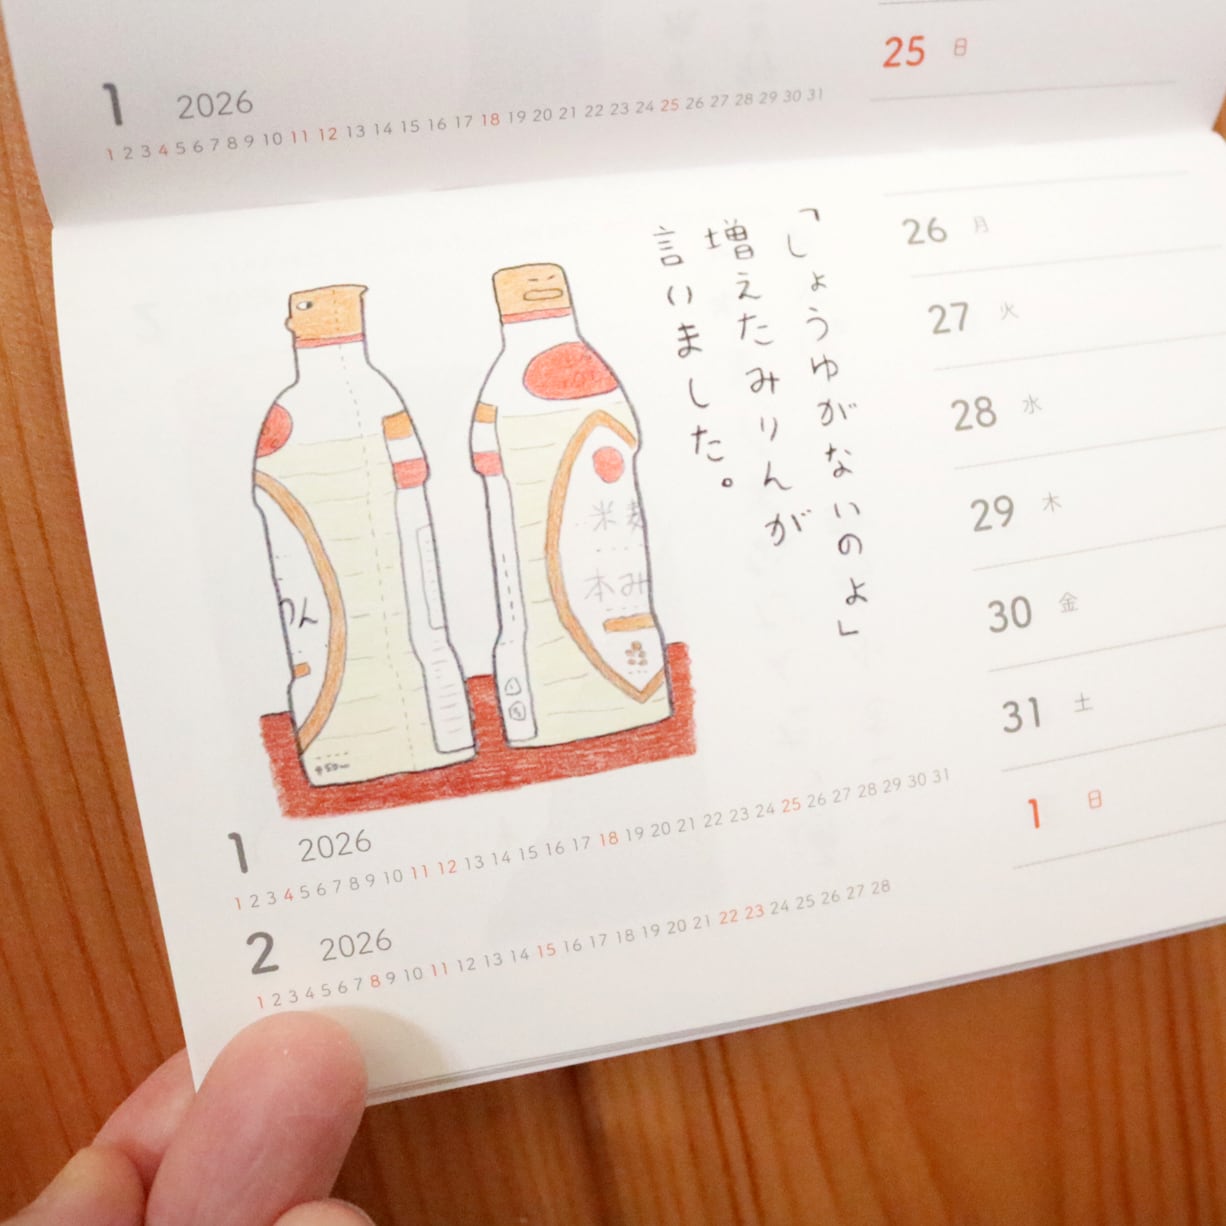 25 日
1 2026
1 2 3 4 5 6 7 8 9 10 11 12 13 14 15 16 17 18 19 20 21 22 23 24 25 26 27 28 29 30 31
「しょうゆがないのよ」
増えたみりんが
言いました。
米麹
本み
りん
26 月
27 火
28 水
29 木
30 金
31 土
1 日
1 2026
1 2 3 4 5 6 7 8 9 10 11 12 13 14 15 16 17 18 19 20 21 22 23 24 25 26 27 28 29 30 31
2 2026
1 2 3 4 5 6 7 8 9 10 11 12 13 14 15 16 17 18 19 20 21 22 23 24 25 26 27 28